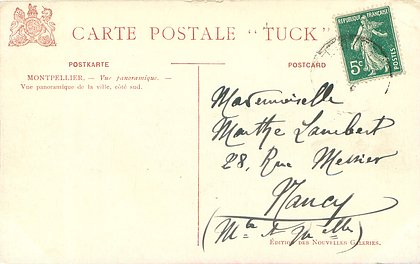 CARTE POSTALE "TUCK"
POSTKARTE POSTCARD
MONTPELLIER. — Vue panoramique. —
Vue panoramique de la ville, côté sud.
REPUBLIQUE FRANÇAISE
5c
POSTES
Mademoiselle
Marthe Lambert
28, Rue Messier
Nancy
(Mthe & Mlle)
EDITION DES NOUVELLES GALERIES.